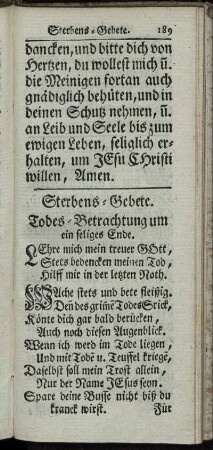 Sterbens-Gebete. 189
dancken, und bitte dich von
Hertzen, du wollest mich uñ.
die Meinigen fortan auch
gnädiglich behüten, und in
deinen Schutz nehmen, uñ.
an Leib und Seele bis zum
ewigen Leben, seliglich er-
halten, um JEsu Christi
willen, Amen.
Sterbens-Gebete.
Todes-Betrachtung um
ein seliges Ende.
LEhre mich mein treuer GOtt,
Stets bedencken meinen Tod,
Hilff mir in der letzten Noth.
WAche stets und bete fleißig.
Deñ des grim̃e Todes Strick,
Könte dich gar bald berücken,
Auch noch diesen Augenblick.
Wenn ich werd im Tode liegen,
Und mit Todẽ u. Teuffel kriege,
Daselbst soll mein Trost allein,
Nur der Name JEsus seyn.
Spare deine Busse nicht biß du
kranck wirst. Für